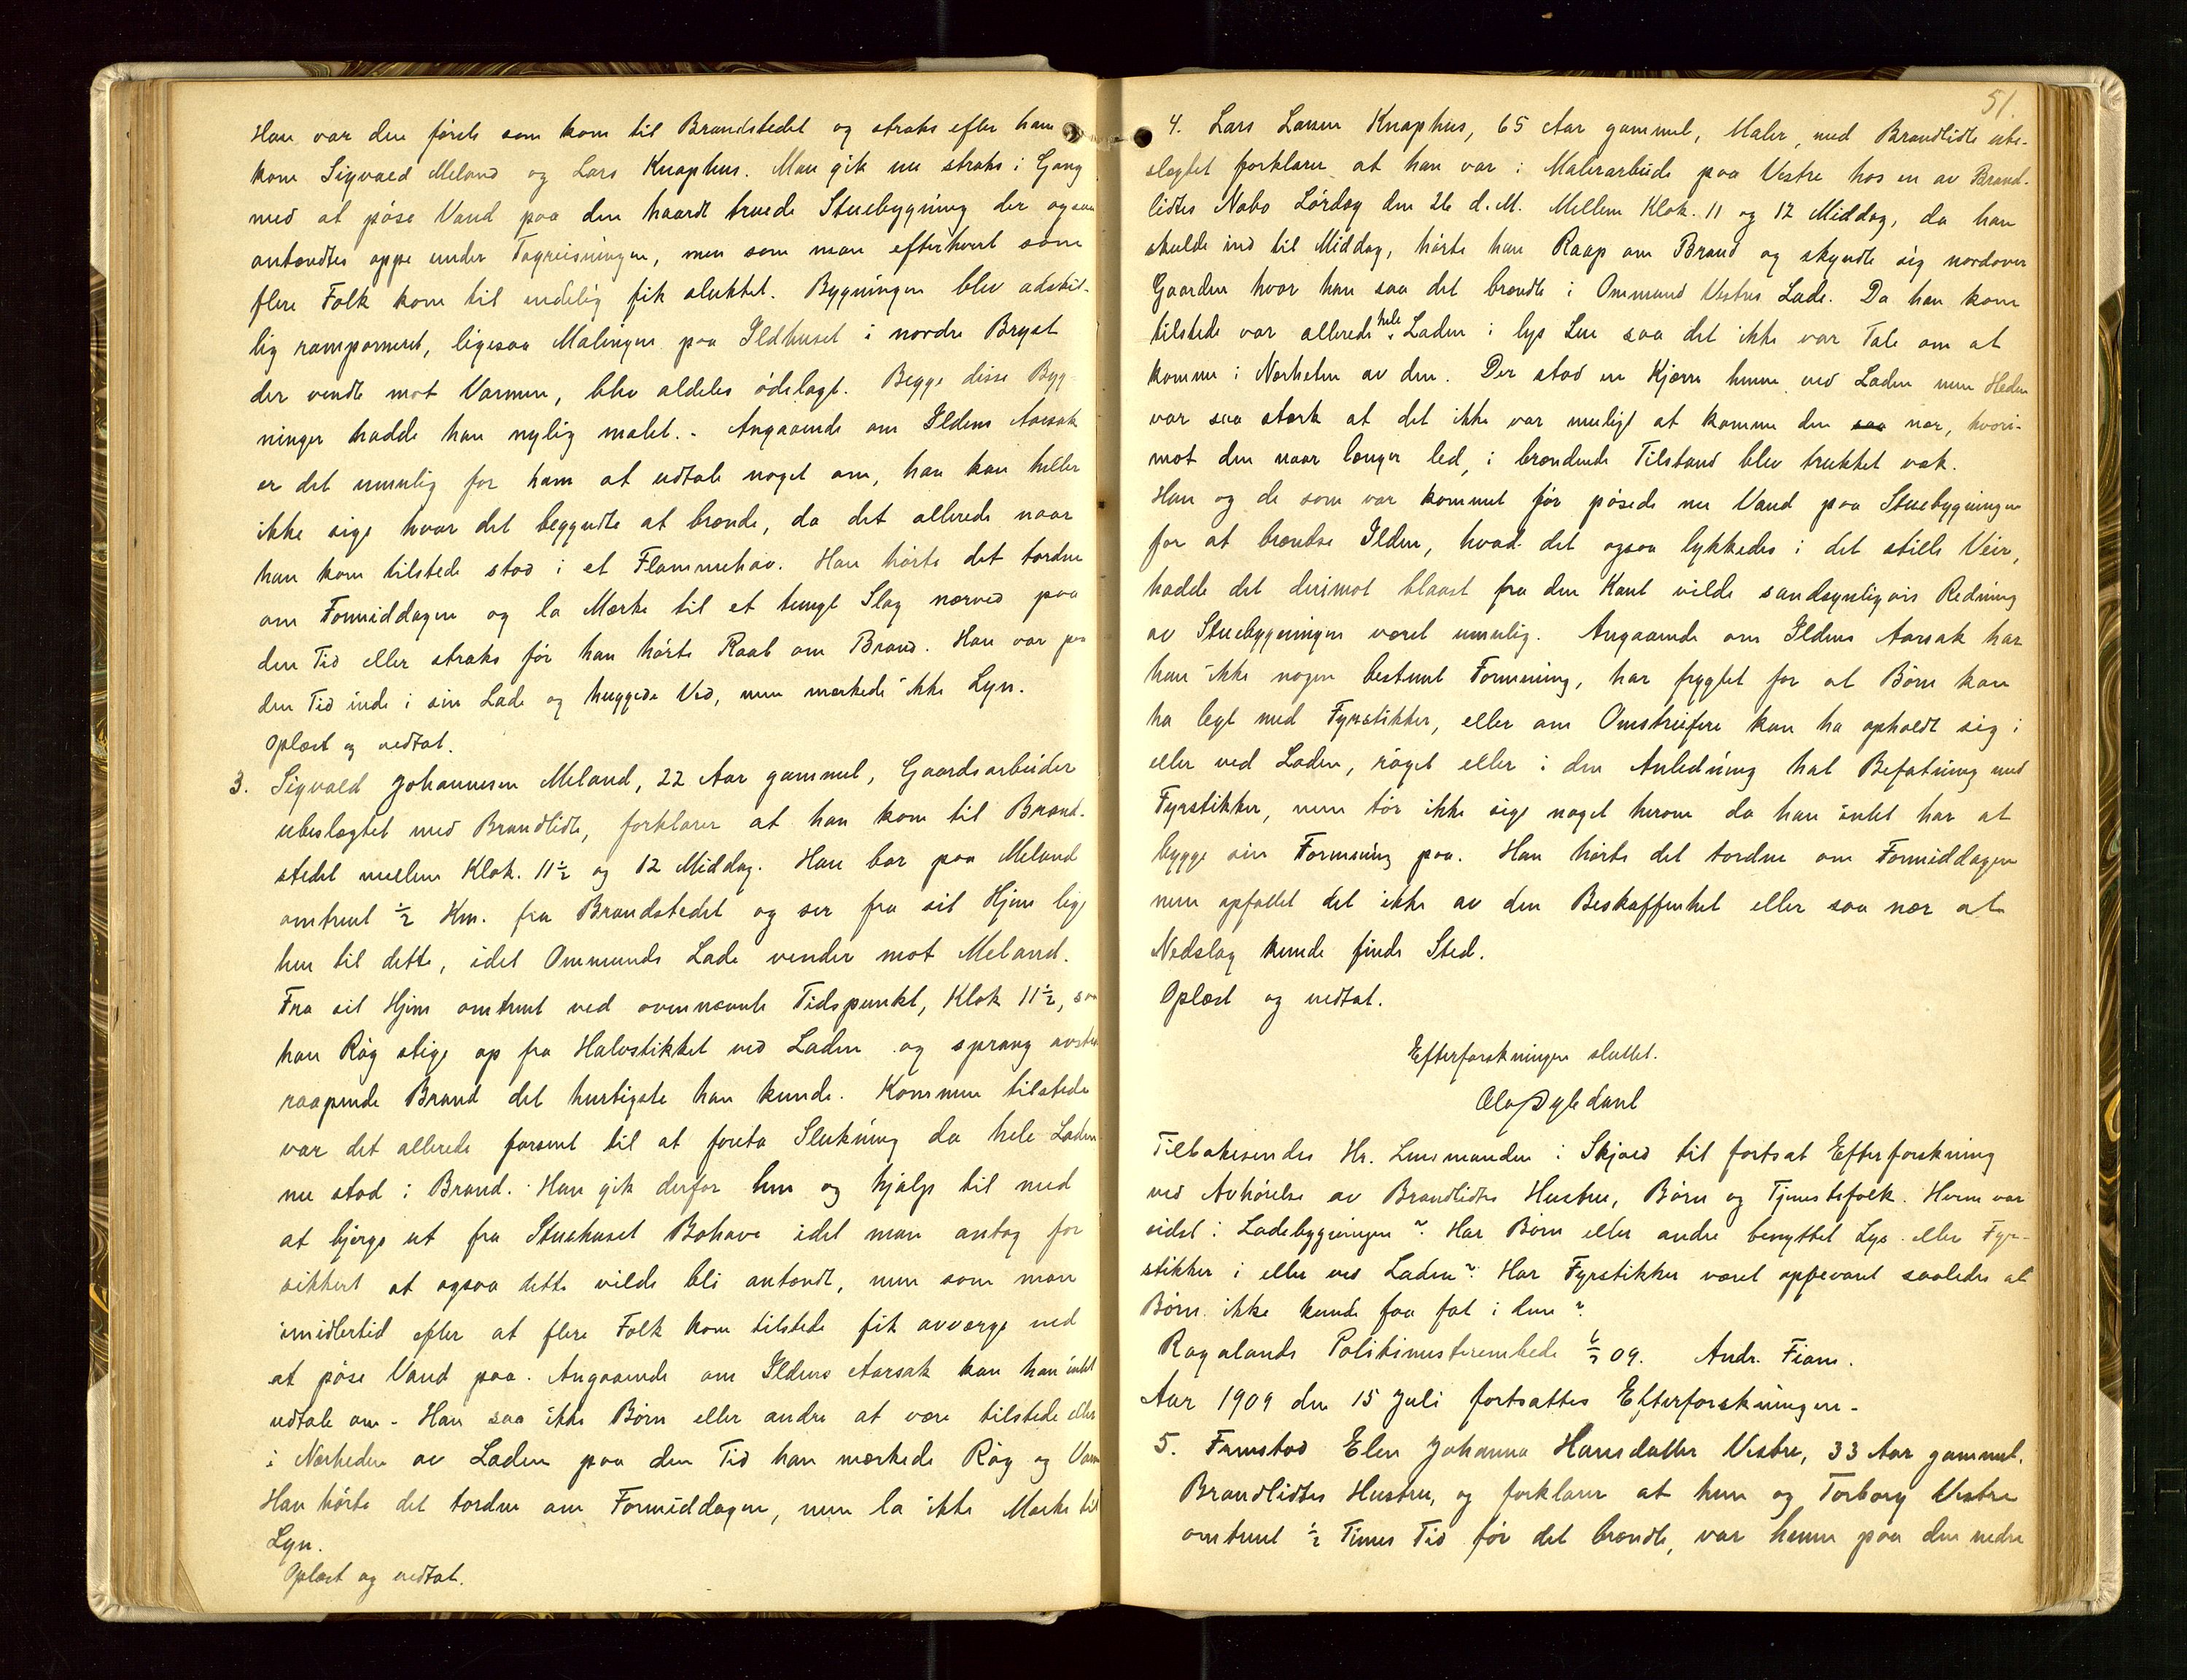 Han var den første som kom til Brandstedet og straks efter ham
kom Sigvald Meland og Lars Knaphus. Man gik nu straks i Gang
med at pøse Vand paa den haardt truede Stuebygning der ogsaa
antændtes oppe under Tagreisningen, men som man efterhvert som
flere Folk kom til endelig fik slukket. Bygningen blev adskil-
lig ramponeret, ligesaa Malingen paa Ildhuset i nordre Bryst
der vendte mot Varmen, blev aldeles ødelagt. Begge disse Byg-
ninger hadde han nylig malet. - Angaaende om Ildens Aarsak
er det umulig for ham at udtale noget om, han kan heller
ikke sige hvor det begyndte at brænde, da det allerede naar
han kom tilstede stod i et Flammehav. Han hørte det tordne
om Formiddagen og la Mærke til et tungt Slag nærved paa
den Tid eller straks før han hørte Raab om Brand. Han var paa
den Tid inde i sin Lade og huggede Ved, men mærkede ikke Lyn.
Oplæst og vedtat.
3. Sigvald Johannesen Meland, 22 Aar gammel, Gaardsarbeider
ubeslægtet med Brandlidte, forklarer at han kom til Brand-
stedet mellem Klok. 11½ og 12 Middag. Han bor paa Meland
omtrent ½ Km. fra Brandstedet og ser fra sit Hjem lige
hen til dette, idet Ommunds Lade vender mot Meland.
Fra sit Hjem omtrent ved ovennævnte Tidspunkt, Klok 11½, saa
han Røg stige op fra Halvstikket ved Laden og sprang avsted
raapende Brand det hurtigste han kunde. Kommen tilstede
var det allerede forsent til at foreta Slukning da hele Laden
nu stod i Brand. Han gik derfor hen og hjalp til med
at bjerge ut fra Stuehuset Bohave idet man antog for
sikkert at ogsaa dette vilde bli antændt, men som man
imidlertid efter at flere Folk kom tilstede fik avværge ved
at pøse Vand paa. Angaaende om Ildens Aarsak kan han intet
udtale om - Han saa ikke Børn eller andre at være tilstede eller
i Nærheden av Laden paa den Tid han mærkede Røg og Varm
Han hørte det tordne om Formiddagen, men la ikke Mærke til
Lyn.
Oplæst og vedtat.
51.
4. Lars Larsen Knaphus, 65 Aar gammel, Maler, med Brandlidte ube-
slægtet forklarer at han var i Malerarbeide paa Vestre hos en av Brand-
lidtes Nabo Lørdag den 26 d.M. Mellem Klok. 11 og 12 Middag, da han
skulde ind til Middag, hørte han Raap om Brand og skyndte sig nordover
Gaarden hvor han saa det brændte i Ommund Vestres Lade. Da han kom
tilstede var allerede hele Laden i lys Lue saa det ikke var Tale om at
komme i Nærheten av den. Der stod en Kjærre henne ved Laden men Heden
var saa stærk at det ikke var muligt at komme den saa nær, hvori-
mot den naar længer led, i brændende Tilstand blev trukket væk.
Han og de som var kommet før pøsede nu Vand paa Stuebygningen
for at brændse Ilden, hvad det ogsaa lykkedes i det stille Veir,
hadde det derimot blaast fra den Kant vilde sandsynligvis Redning
av Stuebygningen været umulig. Angaaende om Ildens Aarsak har
han ikke nogen bestemt Formening, har frygtet for at Børn kan
ha legt med Fyrstikker, eller om Omstreifere kan ha opholdt sig i
eller ved Laden, røget eller i den Anledning hat Befatning med
Fyrstikker, men tør ikke sige noget herom da han intet har at
bygge sin Formening paa. Han hørte det tordne om Formiddagen
men opfattet det ikke av den Beskaffenhet eller saa nær at
Nedslag kunde finde Sted.
Oplæst og vedtat.
Efterforskningen sluttet.
Tilbakesendes Hr. Lensmanden i Skjold til fortsat Efterforskning
ved Avhørelse av Brandlidtes Hustru, Børn og Tjenestefolk. Hvem var
sidst i Ladebygningen? Har Børn eller andre benyttet Lys eller Fyr-
stikker i eller ved Laden? Har Fyrstikker været oppevaret saaledes at
Børn ikke kunde faa fat i dem?
Rogalands Politimesterembede 6/7 09. Andr. Fians.
Aar 1909 den 15 Juli fortsattes Efterforskningen -
5. Fremstod Elen Johanna Hansdatter Vestre, 33 Aar gammel.
Brandlidtes Hustru, og forklarer at hun og Torborg Vestre
omtrent ½ Times Tid før det brændte, var henne paa den nedre